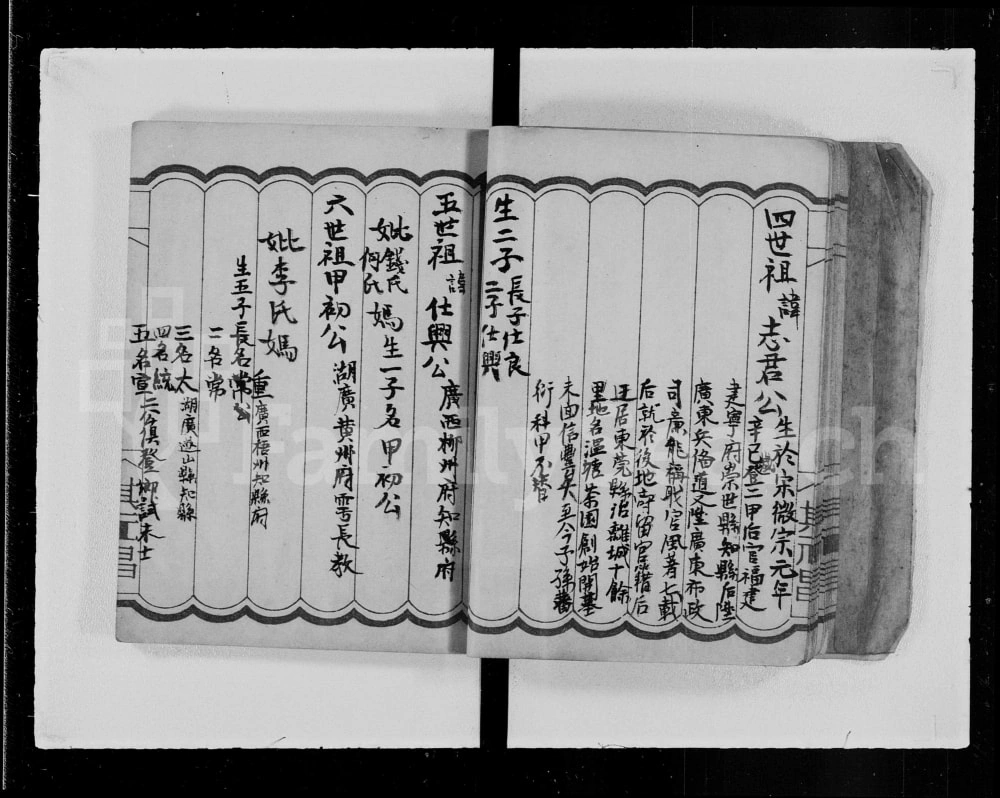 四世祖諱志君公生於宗徽宗元年
辛巳登二甲后官福建
建寧府崇世縣知縣后陞
廣東兵俻道又陞廣東布政
司廉能稱职官風著七載
后就於後地寄宙官籍后
迁居東莞縣治離城十餘
里地名溫塘茶園創始開基
未回信豐矣至今子孫蕃
衍科甲不替
生二子長子仕良
二子仕興
五世祖諱仕興公廣西柳州府知縣府
妣錢氏何氏媽生一子名甲初公
六世祖甲初公湖廣黄州府儒長教
妣李氏媽
重廣西梧州知縣府
生五子長名常公
二名常
三名太湖廣遂山縣知縣
四名統
五名宣二位俱登鄉試未士
FamilySearch